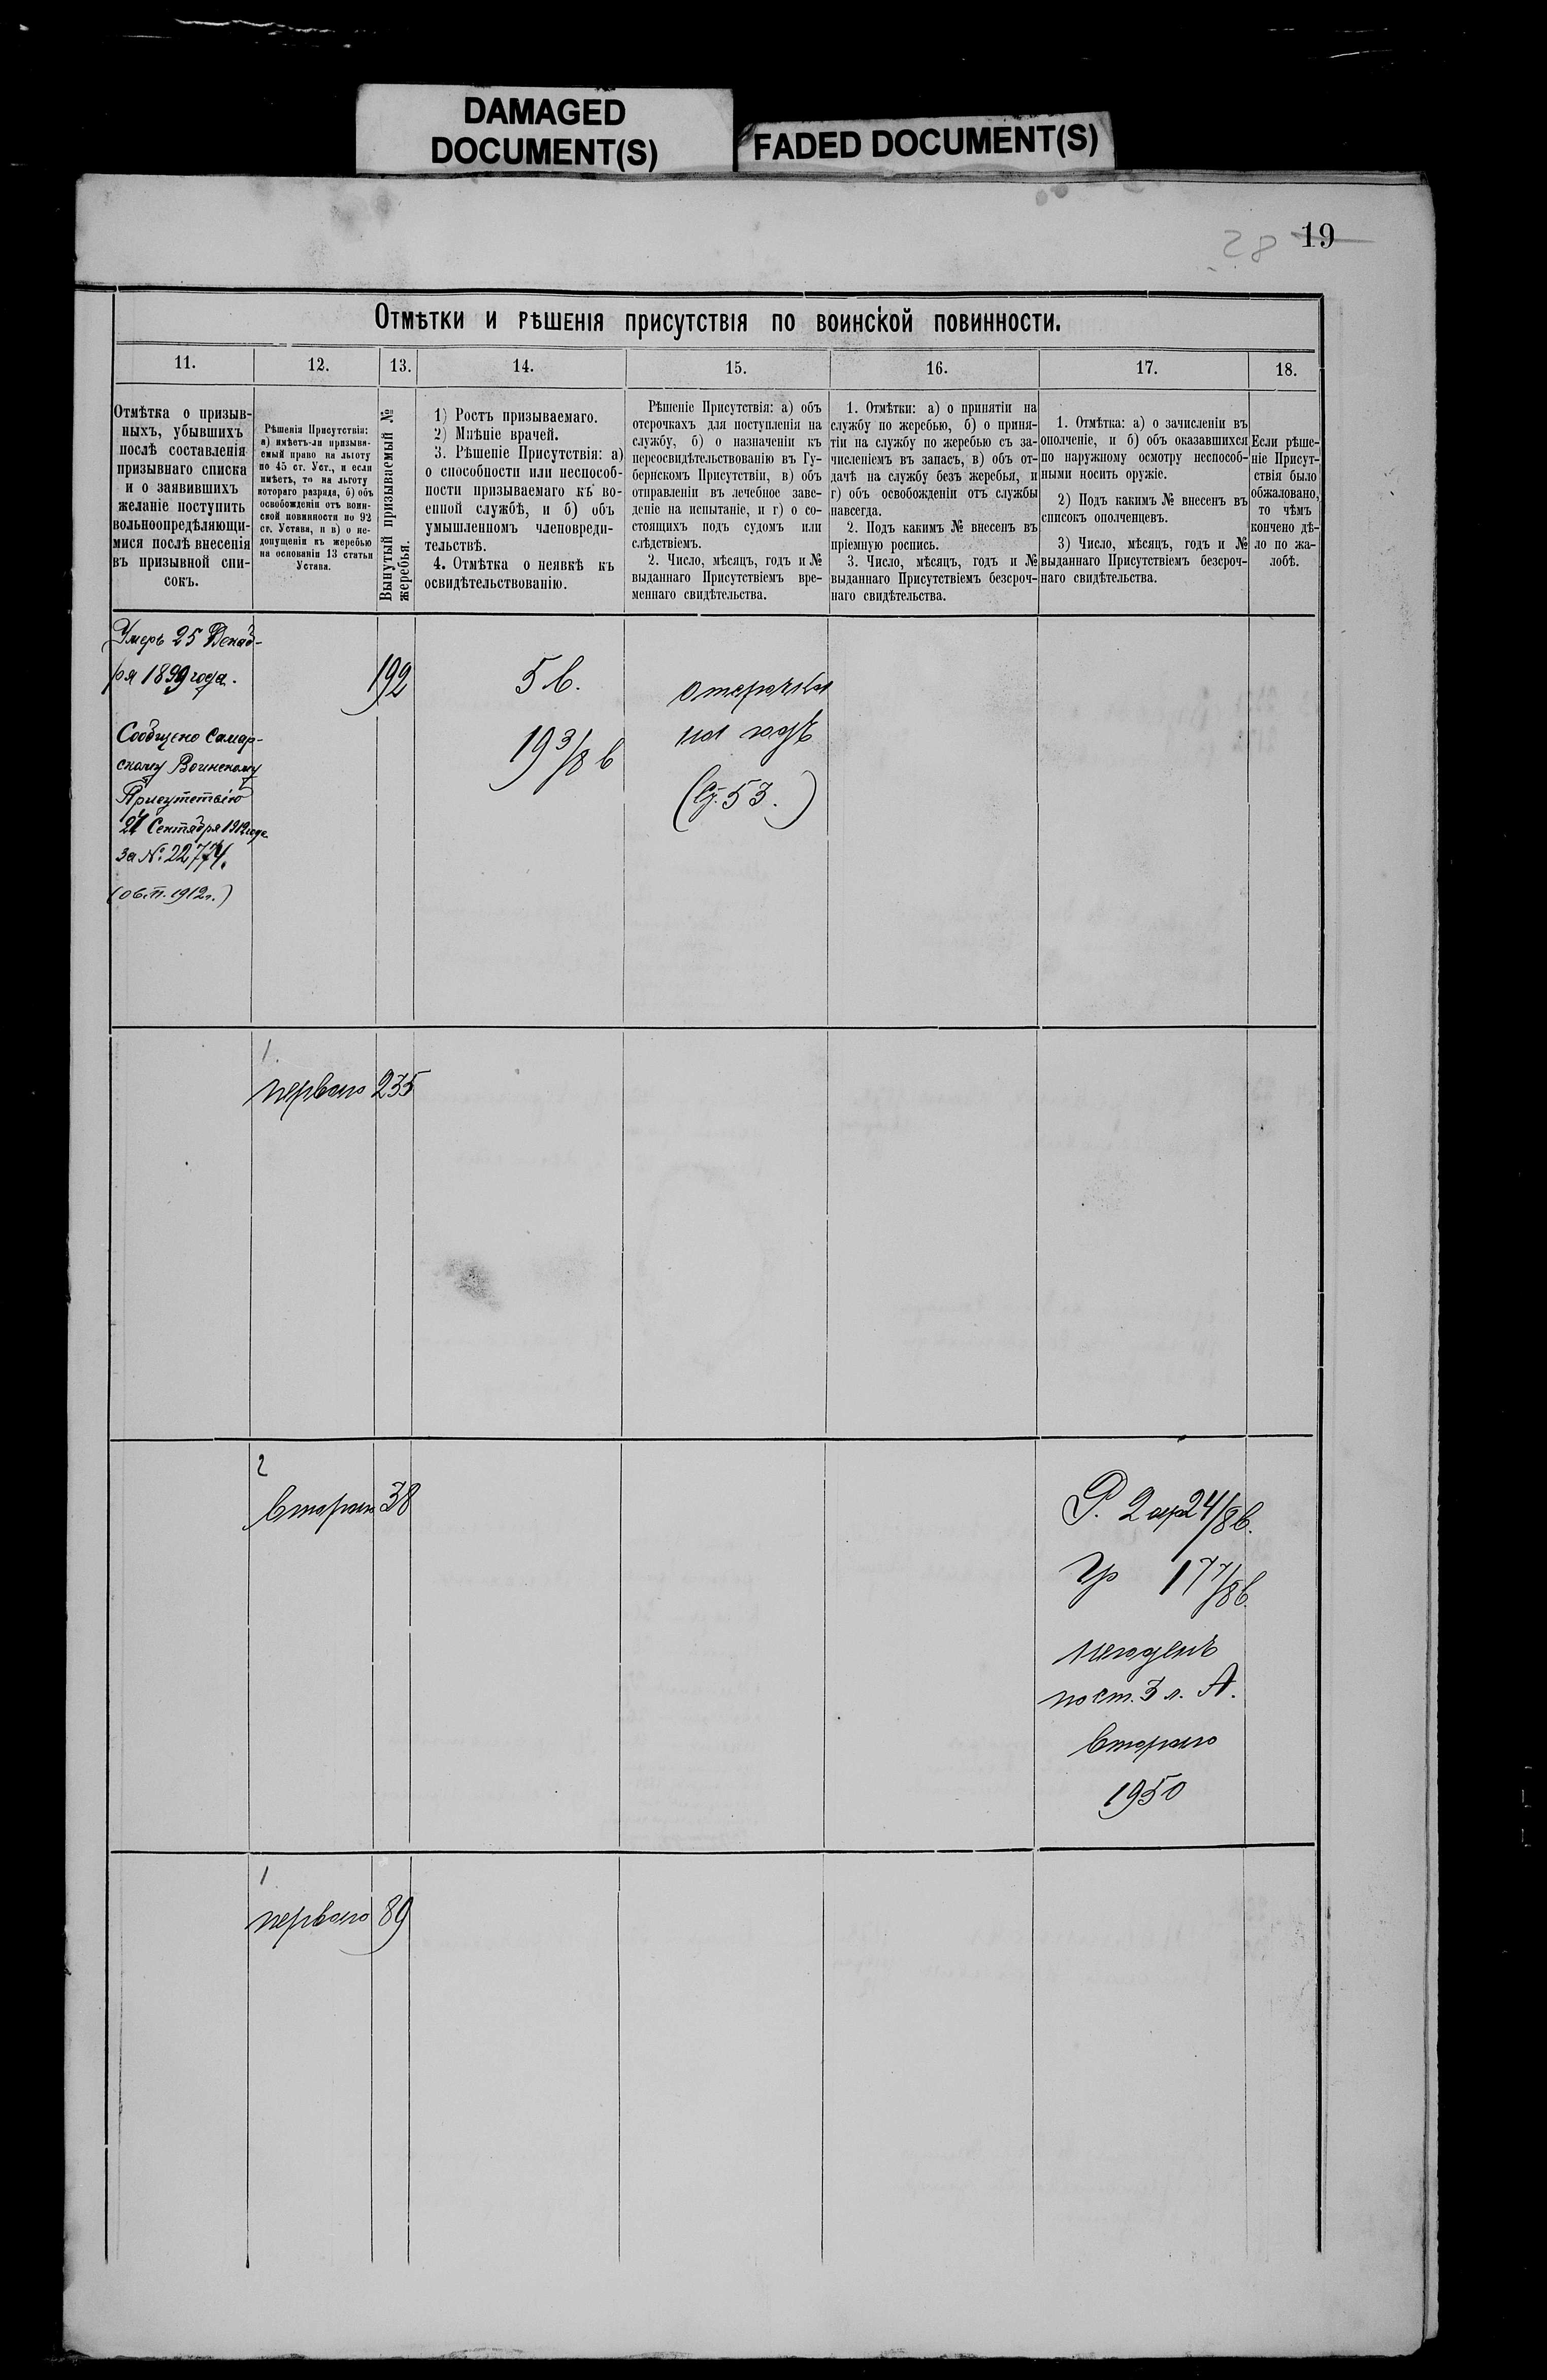 DAMAGED
DOCUMENT(S)
FADED DOCUMENT(S)
28 19
Отмѣтки и рѣшенія присутствія по воинской повинности.
11.
12.
13.
14.
15.
16.
17.
18.
Отмѣтка о призыв-
ныхъ, убывшихъ
послѣ составленія
призывнаго списка
и о заявившихъ
желаніе поступить
вольноопредѣляющи-
мися послѣ внесенія
въ призывной спи-
сокъ.
Рѣшенія Присутствія:
а) имѣетъ-ли призыва-
емый право на льготу
по 45 ст. Уст., и если
имѣетъ, то на льготу
котораго разряда, б) объ
освобожденіи отъ воин-
ской повинности по 92
ст. Устава, и в) о не-
допущеніи къ жеребью
на основаніи 13 статьи
Устава.
Вынутый призываемый №
жеребья.
1) Ростъ призываемаго.
2) Мнѣніе врачей.
3. Рѣшеніе Присутствія: а)
о способности или неспособ-
ности призываемаго къ во-
енной службѣ, и б) объ
умышленномъ членовреди-
тельствѣ.
4. Отмѣтка о неявкѣ къ
освидѣтельствованію.
Рѣшеніе Присутствія: а) объ
отсрочкахъ для поступленія на
службу, б) о назначеніи къ
переосвидѣтельствованію въ Гу-
бернскомъ Присутствіи, в) объ
отправленіи въ лечебное заве-
деніе на испытаніе, и г) о со-
стоящихъ подъ судомъ или
слѣдствіемъ.
2. Число, мѣсяцъ, годъ и №
выданнаго Присутствіемъ вре-
меннаго свидѣтельства.
1. Отмѣтки: а) о принятіи на
службу по жеребью, б) о приня-
тіи на службу по жеребью съ за-
численіемъ въ запасъ, в) объ от-
дачѣ на службу безъ жеребья, и
г) объ освобожденіи отъ службы
навсегда.
2. Подъ какимъ № внесенъ въ
пріемную роспись.
3. Число, мѣсяцъ, годъ и №
выданнаго Присутствіемъ безсроч-
наго свидѣтельства.
1. Отмѣтка: а) о зачисленіи въ
ополченіе, и б) объ оказавшихся
по наружному осмотру неспособ-
ными носить оружіе.
2) Подъ какимъ № внесенъ въ
списокъ ополченцевъ.
3) Число, мѣсяцъ, годъ и №
выданнаго Присутствіемъ безсроч-
наго свидѣтельства.
Если рѣше-
ніе Присут-
ствія было
обжаловано,
то чѣмъ
кончено дѣ-
ло по жа-
лобѣ.
Умеръ 25 Декаб-
ря 1899 года.
Сообщено Самар-
скому Воинскому
Присутствію
24 Сентября 1912 года
за №: 22774.
192
5 в.
19 3/8 в
отсрочка
на годъ
(Ст. 53.)
1.
перваго 235
2
втораго 38
Р. 2 ар 24/8 в.
Гр 17 7/8 в.
негоденъ
по ст. 3 л. А.
втораго
1950
1
перваго 89